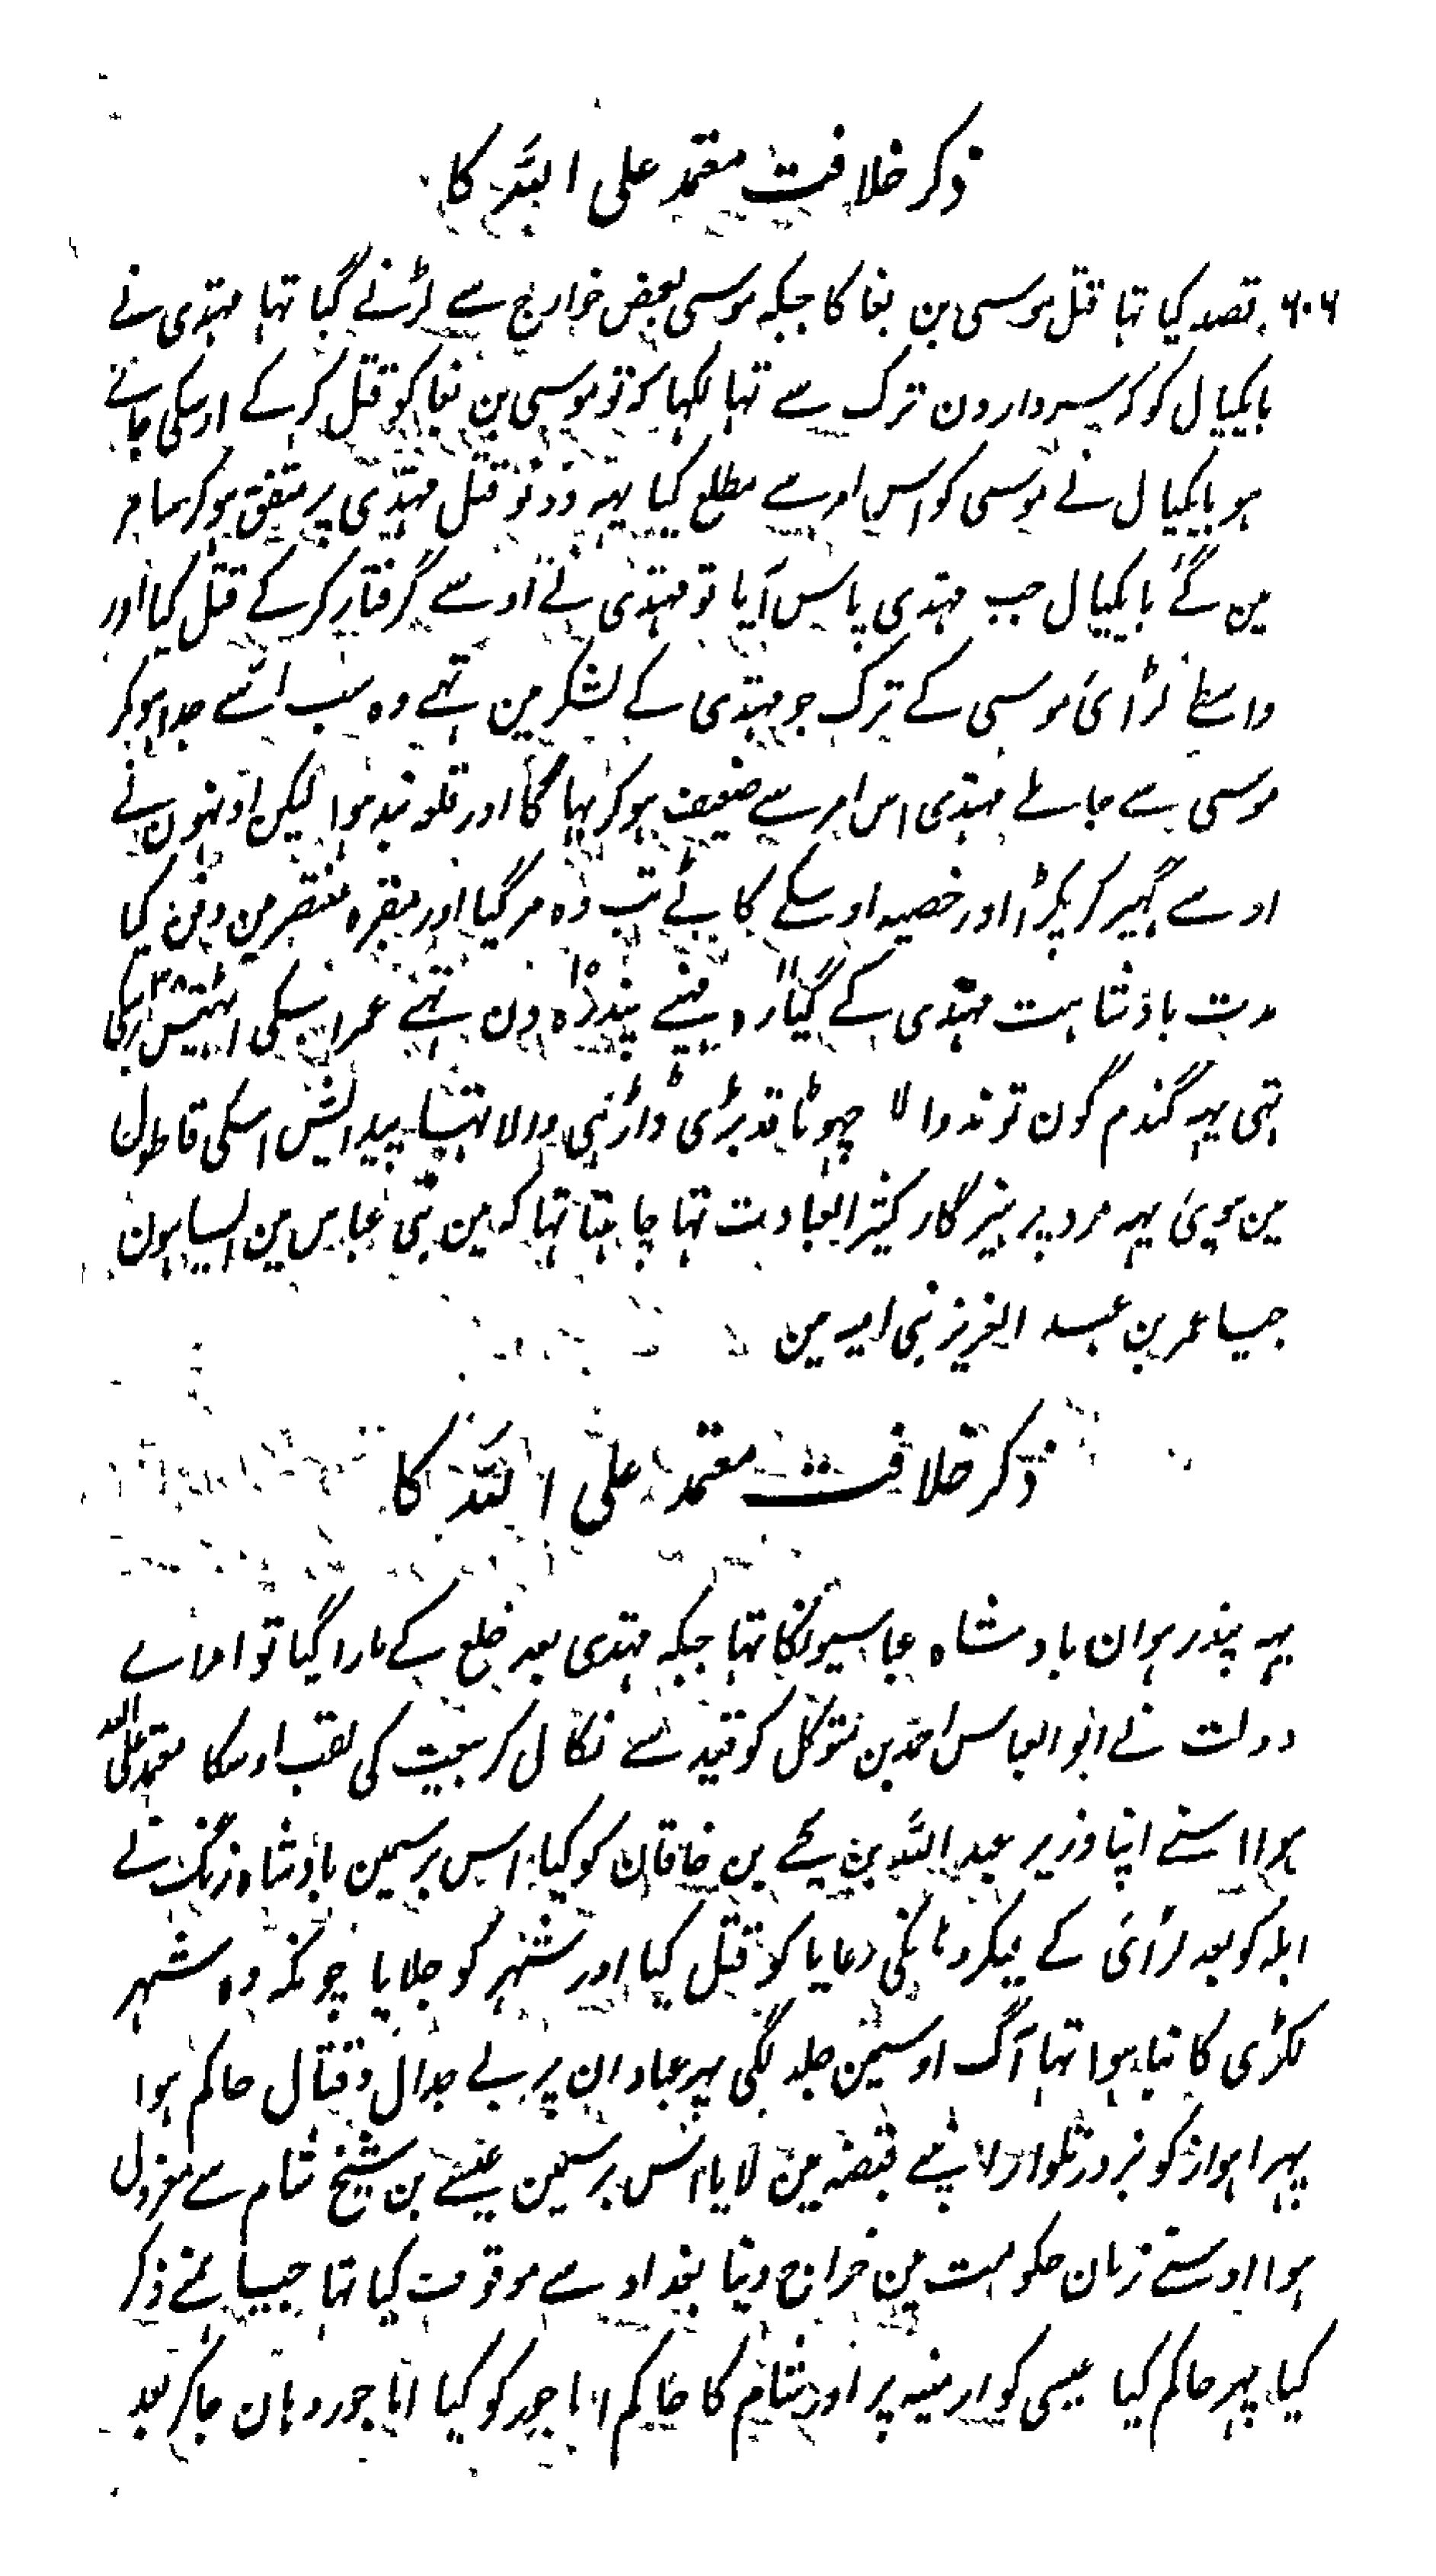 ذکر خلافت معتمد علی اللہ کا
۶۰۶ قصد کیا تہا قتل موسی بن بغا کا جبکہ موسی بعض خوارج سے لڑنے گیا تہا مہتدی نے
بایکیال کو کہ سردارون ترک سے تہا لکہا کہ تو موسی بن بغا کو قتل کر کے اوسکی جائے
ہو بایکیال نے موسی کو اس امر سے مطلع کیا یہہ دونو قتل مہتدی پر متفق ہو کر سامر
مین گئے بایکیال جب مہتدی پاس آیا تو مہتدی نے اوسے گرفتار کر کے قتل کیا اور
واسطے لڑائی موسی کے ترک جو مہتدی کے لشکر مین تہے وہ سب اسّے جدا ہو کر
موسی سے جا ملے مہتدی اس امر سے ضعیف ہو کر بہاگا اور قلعہ بند ہوا لیکن اونہون نے
اوسے گہیر کر پکڑا اور خصیہ اوسکے کاٹے تب وہ مر گیا اور مقبرہ منتصر مین دفن کیا
مدت بادشاہت مہتدی کے گیارہ ۱۱ مہینے پندرہ ۱۵ دن تہے عمر اسکی اٹہتیس ۳۸ برسکی
تہی یہہ گندم گون توند والا چہوٹا قد بڑی ڈاڑہی والا تہا پیدایش اسکی قاطول
مین ہویٔ یہہ مرد پرہیزگار کثیر العبادت تہا چاہتا تہا کہ مین بنی عباس مین ایسا ہون
جیسا عمر بن عبد العزیز بنی امیہ مین
ذکر خلافت معتمد علی اللہ کا
یہہ پندرہوان بادشاہ عباسیونکا تہا جبکہ مہتدی بعد خلع کے مارا گیا تو امراے
دولت نے ابو العباس احمد بن متوکل کو قید سے نکال کر بیعت کی لقب اوسکا معتمد علی اللہ
ہوا اسنے اپنا وزیر عبد اللہ بن یحے بن خاقان کو کیا اس برسمین بادشاہ زنگ نے
ابلہ کو بعد لڑائی کے لیکر وہانکی رعایا کو قتل کیا اور شہر کو جلایا چونکہ وہ شہر
لکڑی کا بنا ہوا تہا آگ اوسمین جلد لگی پہر عبادان پر بے جدال و قتال حاکم ہوا
پہر اہواز کو بزور تلوار اپنے قبضہ مین لایا اس برسمین عیسے بن شیخ شام سے معزول
ہوا اوسنے زمان حکومت مین خراج دینا بغداد سے موقوف کیا تہا جیسا ہمنے ذکر
کیا پہر حاکم کیا عیسی کو ارمنیہ پر اور شام کا حاکم اماجور کو کیا اماجور وہان جا کر بعد